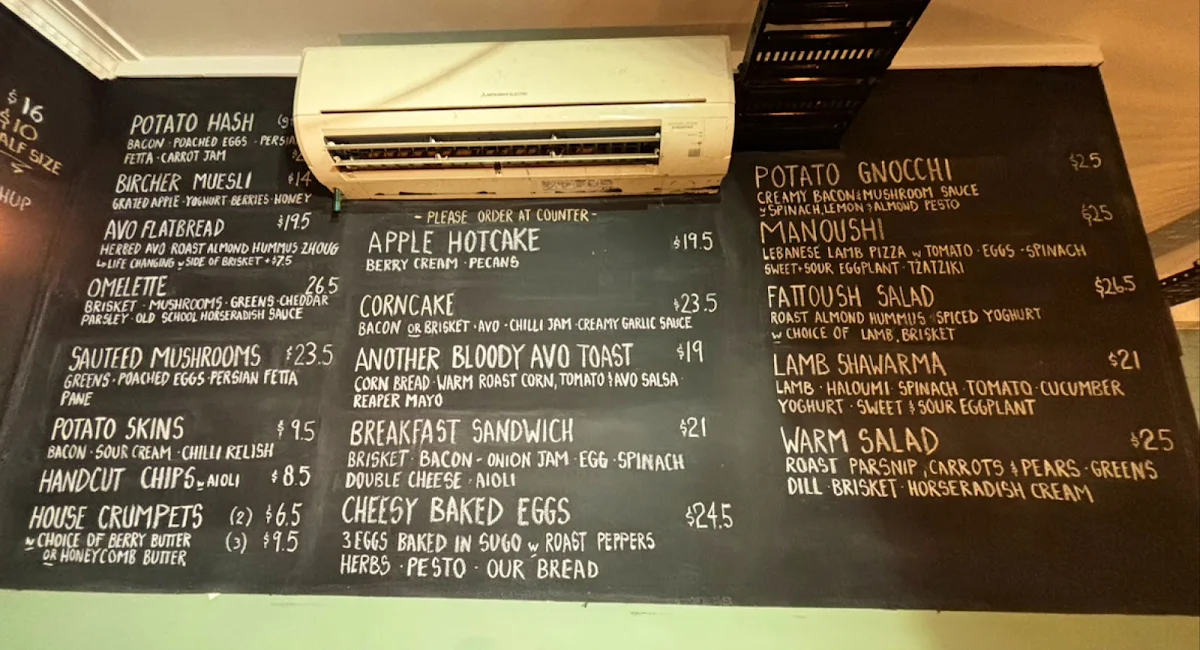 $16
$10
HALF SIZE
POTATO HASH (g
BACON · POACHED EGGS · PERSIAN
FETTA · CARROT JAM
BIRCHER MUESLI $14
GRATED APPLE · YOGHURT · BERRIES · HONEY
AVO FLATBREAD $19.5
HERBED AVO ROAST ALMOND HUMMUS ZHOUG
↳ LIFE CHANGING w SIDE OF BRISKET + $7.5
OMELETTE 26.5
BRISKET · MUSHROOMS · GREENS · CHEDDAR
PARSLEY · OLD SCHOOL HORSERADISH SAUCE
SAUTEED MUSHROOMS $23.5
GREENS · POACHED EGGS · PERSIAN FETTA
PANE
POTATO SKINS $9.5
BACON · SOUR CREAM · CHILLI RELISH
HANDCUT CHIPS w AIOLI $8.5
HOUSE CRUMPETS (2) $6.5
w CHOICE OF BERRY BUTTER (3) $9.5
OR HONEYCOMB BUTTER
MITSUBISHI ELECTRIC
- PLEASE ORDER AT COUNTER -
APPLE HOTCAKE $19.5
BERRY CREAM · PECANS
CORNCAKE $23.5
BACON OR BRISKET · AVO · CHILLI JAM · CREAMY GARLIC SAUCE
ANOTHER BLOODY AVO TOAST $19
CORN BREAD · WARM ROAST CORN, TOMATO & AVO SALSA ·
REAPER MAYO
BREAKFAST SANDWICH $21
BRISKET · BACON - ONION JAM · EGG · SPINACH
DOUBLE CHEESE · AIOLI
CHEESY BAKED EGGS $24.5
3 EGGS BAKED IN SUGO w ROAST PEPPERS
HERBS · PESTO · OUR BREAD
POTATO GNOCCHI $25
CREAMY BACON & MUSHROOM SAUCE
w SPINACH, LEMON & ALMOND PESTO
MANOUSHI $25
LEBANESE LAMB PIZZA w TOMATO · EGGS · SPINACH
SWEET + SOUR EGGPLANT · TZATZIKI
FATTOUSH SALAD $26.5
ROAST ALMOND HUMMUS · SPICED YOGHURT
w CHOICE OF LAMB, BRISKET
LAMB SHAWARMA $21
LAMB · HALOUMI · SPINACH · TOMATO · CUCUMBER
YOGHURT · SWEET & SOUR EGGPLANT
WARM SALAD $25
ROAST PARSNIP, CARROTS & PEARS · GREENS
DILL · BRISKET · HORSERADISH CREAM